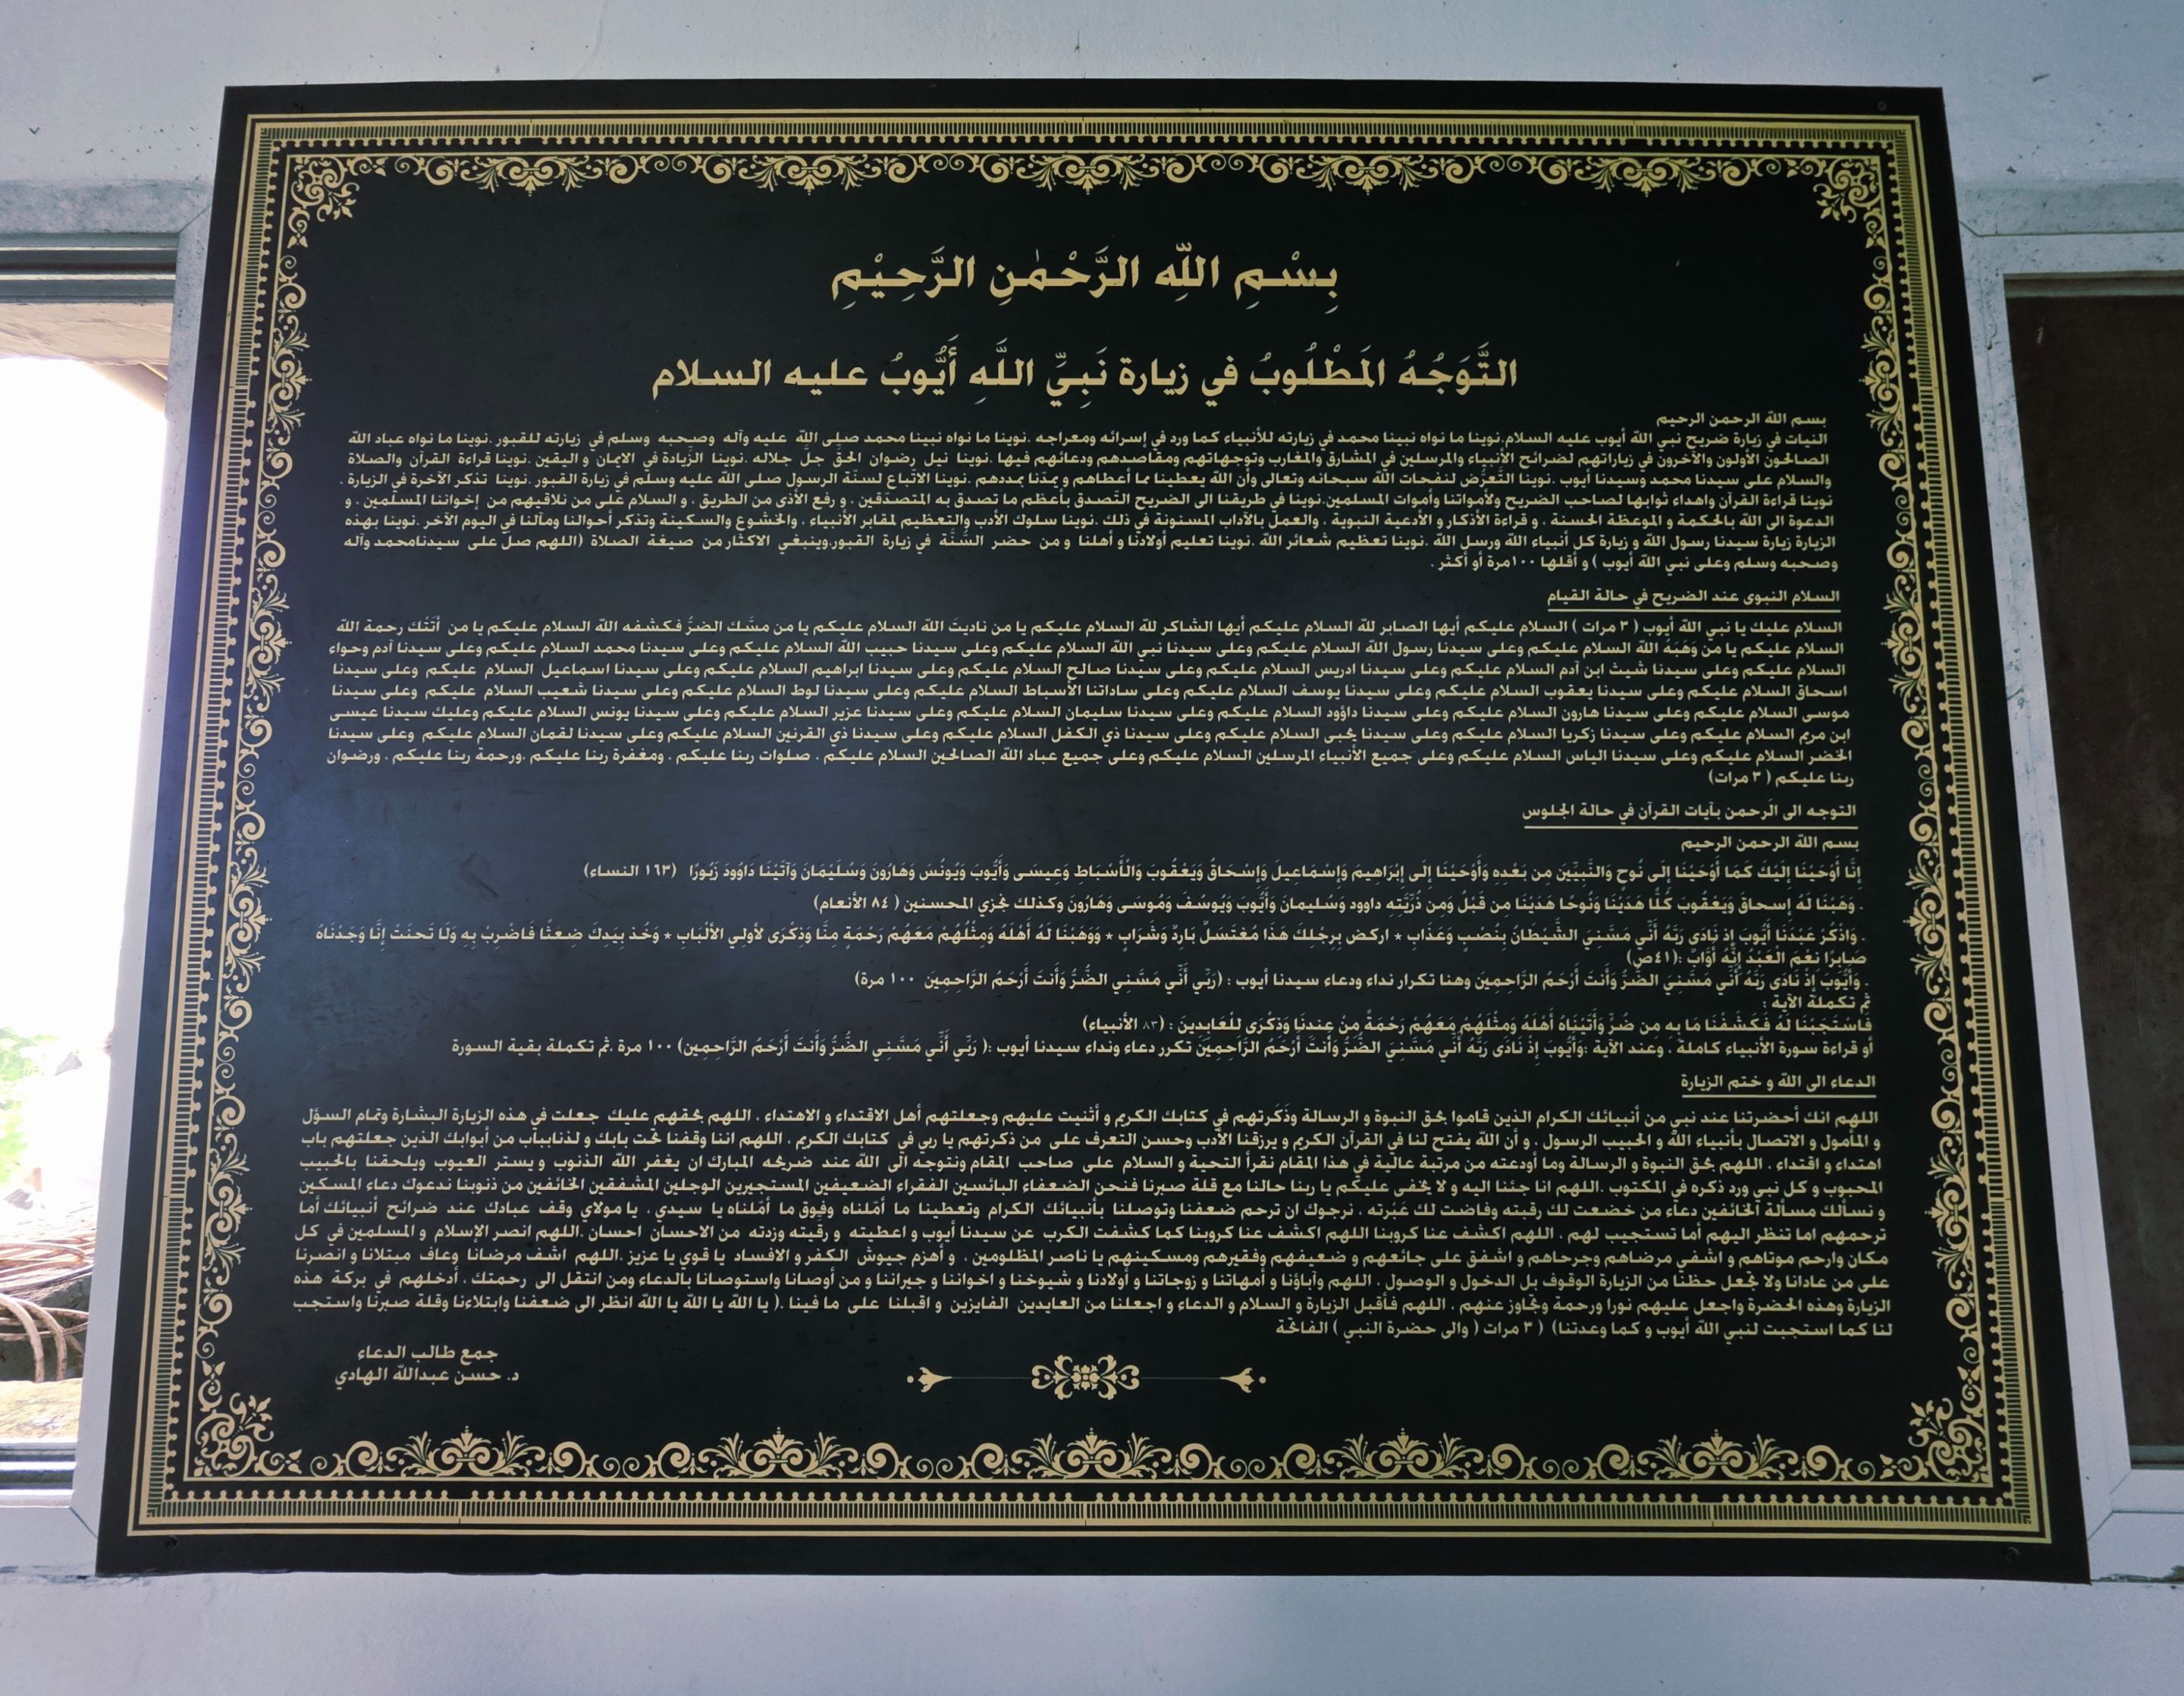 بِسْمِ اللّٰهِ الرَّحْمٰنِ الرَّحِيْمِ
التَّوَجُهُ المَطْلُوبُ في زيارة نَبِيِّ اللَّهِ أَيُّوبُ عليه السلام
بسم الله الرحمن الرحيم
النيات في زيارة ضريح نبي الله أيوب عليه السلام.نوينا ما نواه نبينا محمد في زيارته للأنبياء كما ورد في إسرائه ومعراجه .نوينا ما نواه نبينا محمد صلى الله عليه وآله وصحبه وسلم في زيارته للقبور .نوينا ما نواه عباد الله
الصالحون الأولون والآخرون في زياراتهم لضرائح الأنبياء والمرسلين في المشارق والمغارب وتوجهاتهم ومقاصدهم ودعائهم فيها .نوينا نيل رضوان الحق جلّ جلاله .نوينا الزيادة في الايمان و اليقين .نوينا قراءة القرآن والصلاة
والسلام على سيدنا محمد وسيدنا أيوب .نوينا التَّعرُّض لنفحات الله سبحانه وتعالى وأن الله يعطينا بما أعطاهم و يمدّنا بمددهم .نوينا الاتّباع لسنّة الرسول صلى الله عليه وسلم في زيارة القبور.نوينا تذكر الآخرة في الزيارة .
نوينا قراءة القرآن واهداء ثوابها لصاحب الضريح ولأمواتنا وأموات المسلمين.نوينا في طريقنا الى الضريح التّصدق بأعظم ما تصدق به المتصدّقين ، و رفع الأذى من الطريق ، و السلام على من نلاقيهم من إخواننا المسلمين ، و
الدعوة الى الله بالحكمة و الموعظة الحسنة ، و قراءة الأذكار و الأدعية النبوية ، والعمل بالآداب المسنونة في ذلك .نوينا سلوك الأدب والتعظيم لمقابر الأنبياء ، والخشوع والسكينة وتذكر أحوالنا ومآلنا في اليوم الآخر .نوينا بهذه
الزيارة زيارة سيدنا رسول الله و زيارة كل أنبياء الله ورسل الله .نوينا تعظيم شعائر الله .نوينا تعليم أولادنا و أهلنا و من حضر السُّنَّة في زيارة القبور.وينبغي الاكثار من صيغة الصلاة (اللهم صلّ على سيدنامحمد وآله
وصحبه وسلم وعلى نبي الله أيوب ) و أقلها ١٠٠مرة أو أكثر .
السلام النبوى عند الضريح في حالة القيام
السلام عليك يا نبي الله أيوب ( ٣ مرات ) السلام عليكم أيها الصابر لله السلام عليكم أيها الشاكر لله السلام عليكم يا من ناديت الله السلام عليكم يا من مسّك الضرُّ فكشفه الله السلام عليكم يا من أتتك رحمة الله
السلام عليكم يا من وَهَبَهُ الله السلام عليكم وعلى سيدنا رسول الله السلام عليكم وعلى سيدنا نبي الله السلام عليكم وعلى سيدنا حبيب الله السلام عليكم وعلى سيدنا محمد السلام عليكم وعلى سيدنا آدم وحواء
السلام عليكم وعلى سيدنا شيث ابن آدم السلام عليكم وعلى سيدنا ادريس السلام عليكم وعلى سيدنا صالح السلام عليكم وعلى سيدنا ابراهيم السلام عليكم وعلى سيدنا اسماعيل السلام عليكم وعلى سيدنا
اسحاق السلام عليكم وعلى سيدنا يعقوب السلام عليكم وعلى سيدنا يوسف السلام عليكم وعلى ساداتنا الأسباط السلام عليكم وعلى سيدنا لوط السلام عليكم وعلى سيدنا شعيب السلام عليكم وعلى سيدنا
موسى السلام عليكم وعلى سيدنا هارون السلام عليكم وعلى سيدنا داؤود السلام عليكم وعلى سيدنا سليمان السلام عليكم وعلى سيدنا عزير السلام عليكم وعلى سيدنا يونس السلام عليكم وعليك سيدنا عيسى
ابن مريم السلام عليكم وعلى سيدنا زكريا السلام عليكم وعلى سيدنا يحيى السلام عليكم وعلى سيدنا ذي الكفل السلام عليكم وعلى سيدنا ذي القرنين السلام عليكم وعلى سيدنا لقمان السلام عليكم وعلى سيدنا
الخضر السلام عليكم وعلى سيدنا الياس السلام عليكم وعلى جميع الأنبياء المرسلين السلام عليكم وعلى جميع عباد الله الصالحين السلام عليكم ، صلوات ربنا عليكم ، ومغفرة ربنا عليكم ،ورحمة ربنا عليكم ، ورضوان
ربنا عليكم ( ٣ مرات)
التوجه الى الرحمن بآيات القرآن في حالة الجلوس
بسم الله الرحمن الرحيم
إِنَّا أَوْحَيْنَا إِلَيْكَ كَمَا أَوْحَيْنَا إِلَى نُوحٍ وَالنَّبِيِّينَ مِن بَعْدِهِ وَأَوْحَيْنَا إِلَى إِبْرَاهِيمَ وَإِسْمَاعِيلَ وَإِسْحَاقَ وَيَعْقُوبَ وَالْأَسْبَاطِ وَعِيسَى وَأَيُّوبَ وَيُونُسَ وَهَارُونَ وَسُلَيْمَانَ وَآتَيْنَا دَاوُودَ زَبُورًا (١٦٣ النساء)
. وَهَبْنَا لَهُ إِسحاقَ وَيَعْقُوبَ كُلًّا هَدَيْنَا وَنُوحًا هَدَيْنَا مِن قَبْلُ وَمِن ذُرِّيَّتِهِ داوود وَسُليمانَ وَأَيُّوبَ وَيُوسُفَ وَمُوسَى وَهَارُونَ وكذلك نجزي المحسنين ( ٨٤ الأنعام)
. وَاذْكُرْ عَبْدَنَا أَيُّوبَ إِذ نَادَى رَبَّهُ أَنِّي مَسَّنِيَ الشَّيْطَانُ بِنُصْبٍ وَعَذَابٍ * اركض بِرِجْلِكَ هَذَا مُغْتَسَلٌ بَارِدٌ وَشَرَابٌ * وَوَهَبْنَا لَهُ أَهْلَهُ وَمِثْلَهُمْ مَعَهُمْ رَحْمَةٍ مِنَّا وَذِكْرَى لأولي الألْبَابِ * وَخُذ بِيَدِكَ ضِغثًا فَاضْرِبْ بِهِ وَلَا تحنث إِنَّا وَجَدْنَاهُ
صَابِرًا نعْمَ العَبْدُ إِنَّهُ أَوَّابٌ :(٤١ص)
. وَأَيُّوبَ إِذْ نَادَى رَبَّهُ أَنِّي مَسَّنِيَ الضُّرُّ وَأَنتَ أَرْحَمُ الرَّاحِمِينَ وهنا تكرار نداء ودعاء سيدنا أيوب : (رَبِّي أَنِّي مَسَّنِي الضُّرُّ وَأَنتَ أَرْحَمُ الرَّاحِمِينَ ١٠٠ مرة)
ثم تكملة الآية :
فَاسْتَجَبْنَا لَهُ فَكَشَفْنَا مَا بِهِ مِن ضُرٍّ وَآتَيْنَاهُ أَهْلَهُ وَمِثْلَهُمْ مَعَهُمْ رَحْمَةً مِنْ عِندِنَا وَذِكْرَى لِلْعَابِدِينَ : (٨٣ الأنبياء)
أو قراءة سورة الأنبياء كاملة ، وعند الآية :وَأَيُّوبَ إِذْ نَادَى رَبَّهُ أَنِّي مَسَّنِيَ الضُّرُّ وَأَنتَ أَرْحَمُ الرَّاحِمِينَ تكرر دعاء ونداء سيدنا أيوب :( رَبِّي أَنِّي مَسَّنِي الضُّرُّ وَأَنتَ أَرْحَمُ الرَّاحِمِين) ١٠٠ مرة .ثم تكملة بقية السورة
الدعاء الى الله و ختم الزيارة
اللهم انك أحضرتنا عند نبي من أنبيائك الكرام الذين قاموا بحق النبوة و الرسالة وذَكَرتهم في كتابك الكريم و أثنيت عليهم وجعلتهم أهل الاقتداء و الاهتداء ، اللهم بحقهم عليك جعلت في هذه الزيارة البشارة وتمام السؤل
و المأمول و الاتصال بأنبياء الله و الحبيب الرسول ، و أن الله يفتح لنا في القرآن الكريم و يرزقنا الأدب وحسن التعرف على من ذكرتهم يا ربي في كتابك الكريم ، اللهم اننا وقفنا تحت بابك و لذنابباب من أبوابك الذين جعلتهم باب
اهتداء و اقتداء ، اللهم بحق النبوة و الرسالة وما أودعته من مرتبة عالية في هذا المقام نقرأ التحية و السلام على صاحب المقام ونتوجه الى الله عند ضريحه المبارك ان يغفر الله الذنوب و يستر العيوب ويلحقنا بالحبيب
المحبوب و كل نبي ورد ذكره في المكتوب .اللهم انا جئنا اليه و لا يخفى عليكم يا ربنا حالنا مع قلة صبرنا فنحن الضعفاء البائسين الفقراء الضعيفين المستجيرين الوجلين المشفقين الخائفين من ذنوبنا ندعوك دعاء المسكين
و نسألك مسألة الخائفين دعاء من خضعت لك رقبته وفاضت لك عَبْرته ، نرجوك ان ترحم ضعفنا وتوصلنا بأنبيائك الكرام وتعطينا ما أمّلناه وفوق ما أمّلناه يا سيدي ، يا مولاي وقف عبادك عند ضرائح أنبيائك أما
ترحمهم اما تنظر اليهم أما تستجيب لهم ، اللهم اكشف عنا كروبنا اللهم اكشف عنا كروبنا كما كشفت الكرب عن سيدنا أيوب و اعطيته و رقّيته وزدته من الاحسان احسان .اللهم انصر الإسلام و المسلمين في كل
مكان وارحم موتاهم و اشفي مرضاهم وجرحاهم و اشفق على جائعهم و ضعيفهم وفقيرهم ومسكينهم يا ناصر المظلومين ، و أهزم جيوش الكفر و الافساد يا قوي يا عزيز .اللهم اشف مرضانا وعاف مبتلانا و انصرنا
على من عادانا ولا تجعل حظنا من الزيارة الوقوف بل الدخول و الوصول ، اللهم وآباؤنا و أمهاتنا و زوجاتنا و أولادنا و شيوخنا و اخواننا و جيراننا و من أوصانا واستوصانا بالدعاء ومن انتقل الى رحمتك ، أدخلهم في بركة هذه
الزيارة وهذه الحضرة واجعل عليهم نورا ورحمة وتجاوز عنهم ، اللهم فأقبل الزيارة و السلام و الدعاء و اجعلنا من العابدين الفايزين و اقبلنا على ما فينا .( يا الله يا الله يا الله انظر الى ضعفنا وابتلاءنا وقلة صبرنا واستجب
لنا كما استجبت لنبي الله أيوب و كما وعدتنا) ( ٣ مرات ( والى حضرة النبي ) الفاتحة
جمع طالب الدعاء
د. حسن عبدالله الهادي